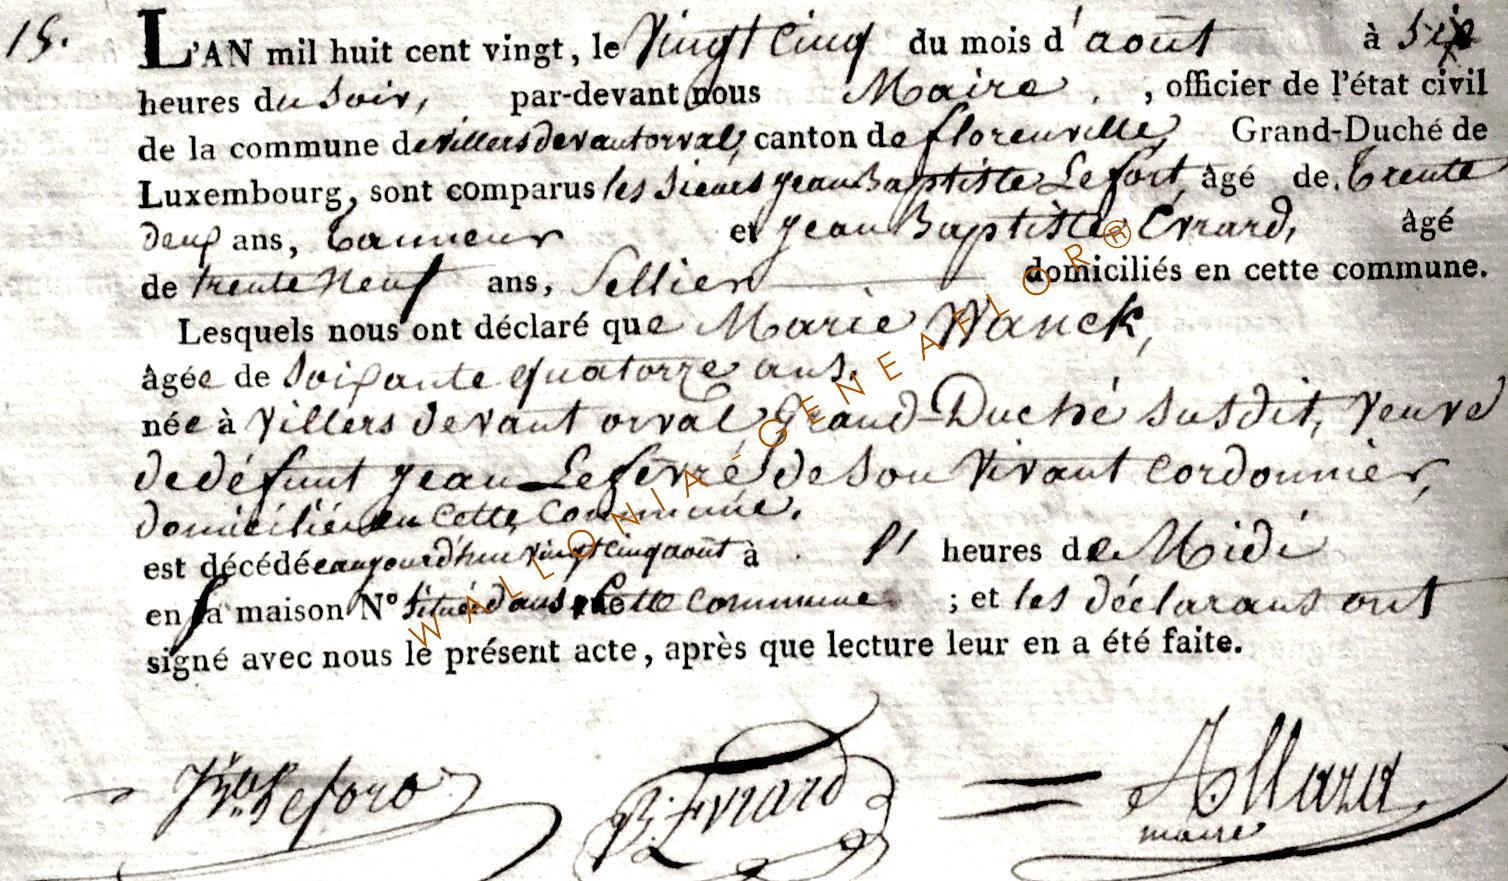 15.
L'AN mil huit cent vingt, le Vingt Cinq du mois d'août à Six
heures du Soir, par-devant nous Maire, officier de l'état civil
de la commune de villers devant orval, canton de florenville, Grand-Duché de
Luxembourg, sont comparus les Sieurs jean Baptiste Lefort, âgé de trente
deux ans, tanneur et jean Baptiste Evrard, âgé
de trente Neuf ans, Sellier domiciliés en cette commune.
Lesquels nous ont déclaré que Marie Wanck,
âgée de Soixante quatorze ans.
née à Villers devant orval Grand-Duché susdit, veuve
de défunt jean Lefevre de son vivant cordonnier,
domiciliée en cette commune.
est décédée aujourd'hui vingt cinq août à heures de Midi
en sa maison N° située dans cette commune ; et les déclarans ont
signé avec nous le présent acte, après que lecture leur en a été faite.
Lefort B. Evrard
maire
WALLONIA-GENEAFLOR®